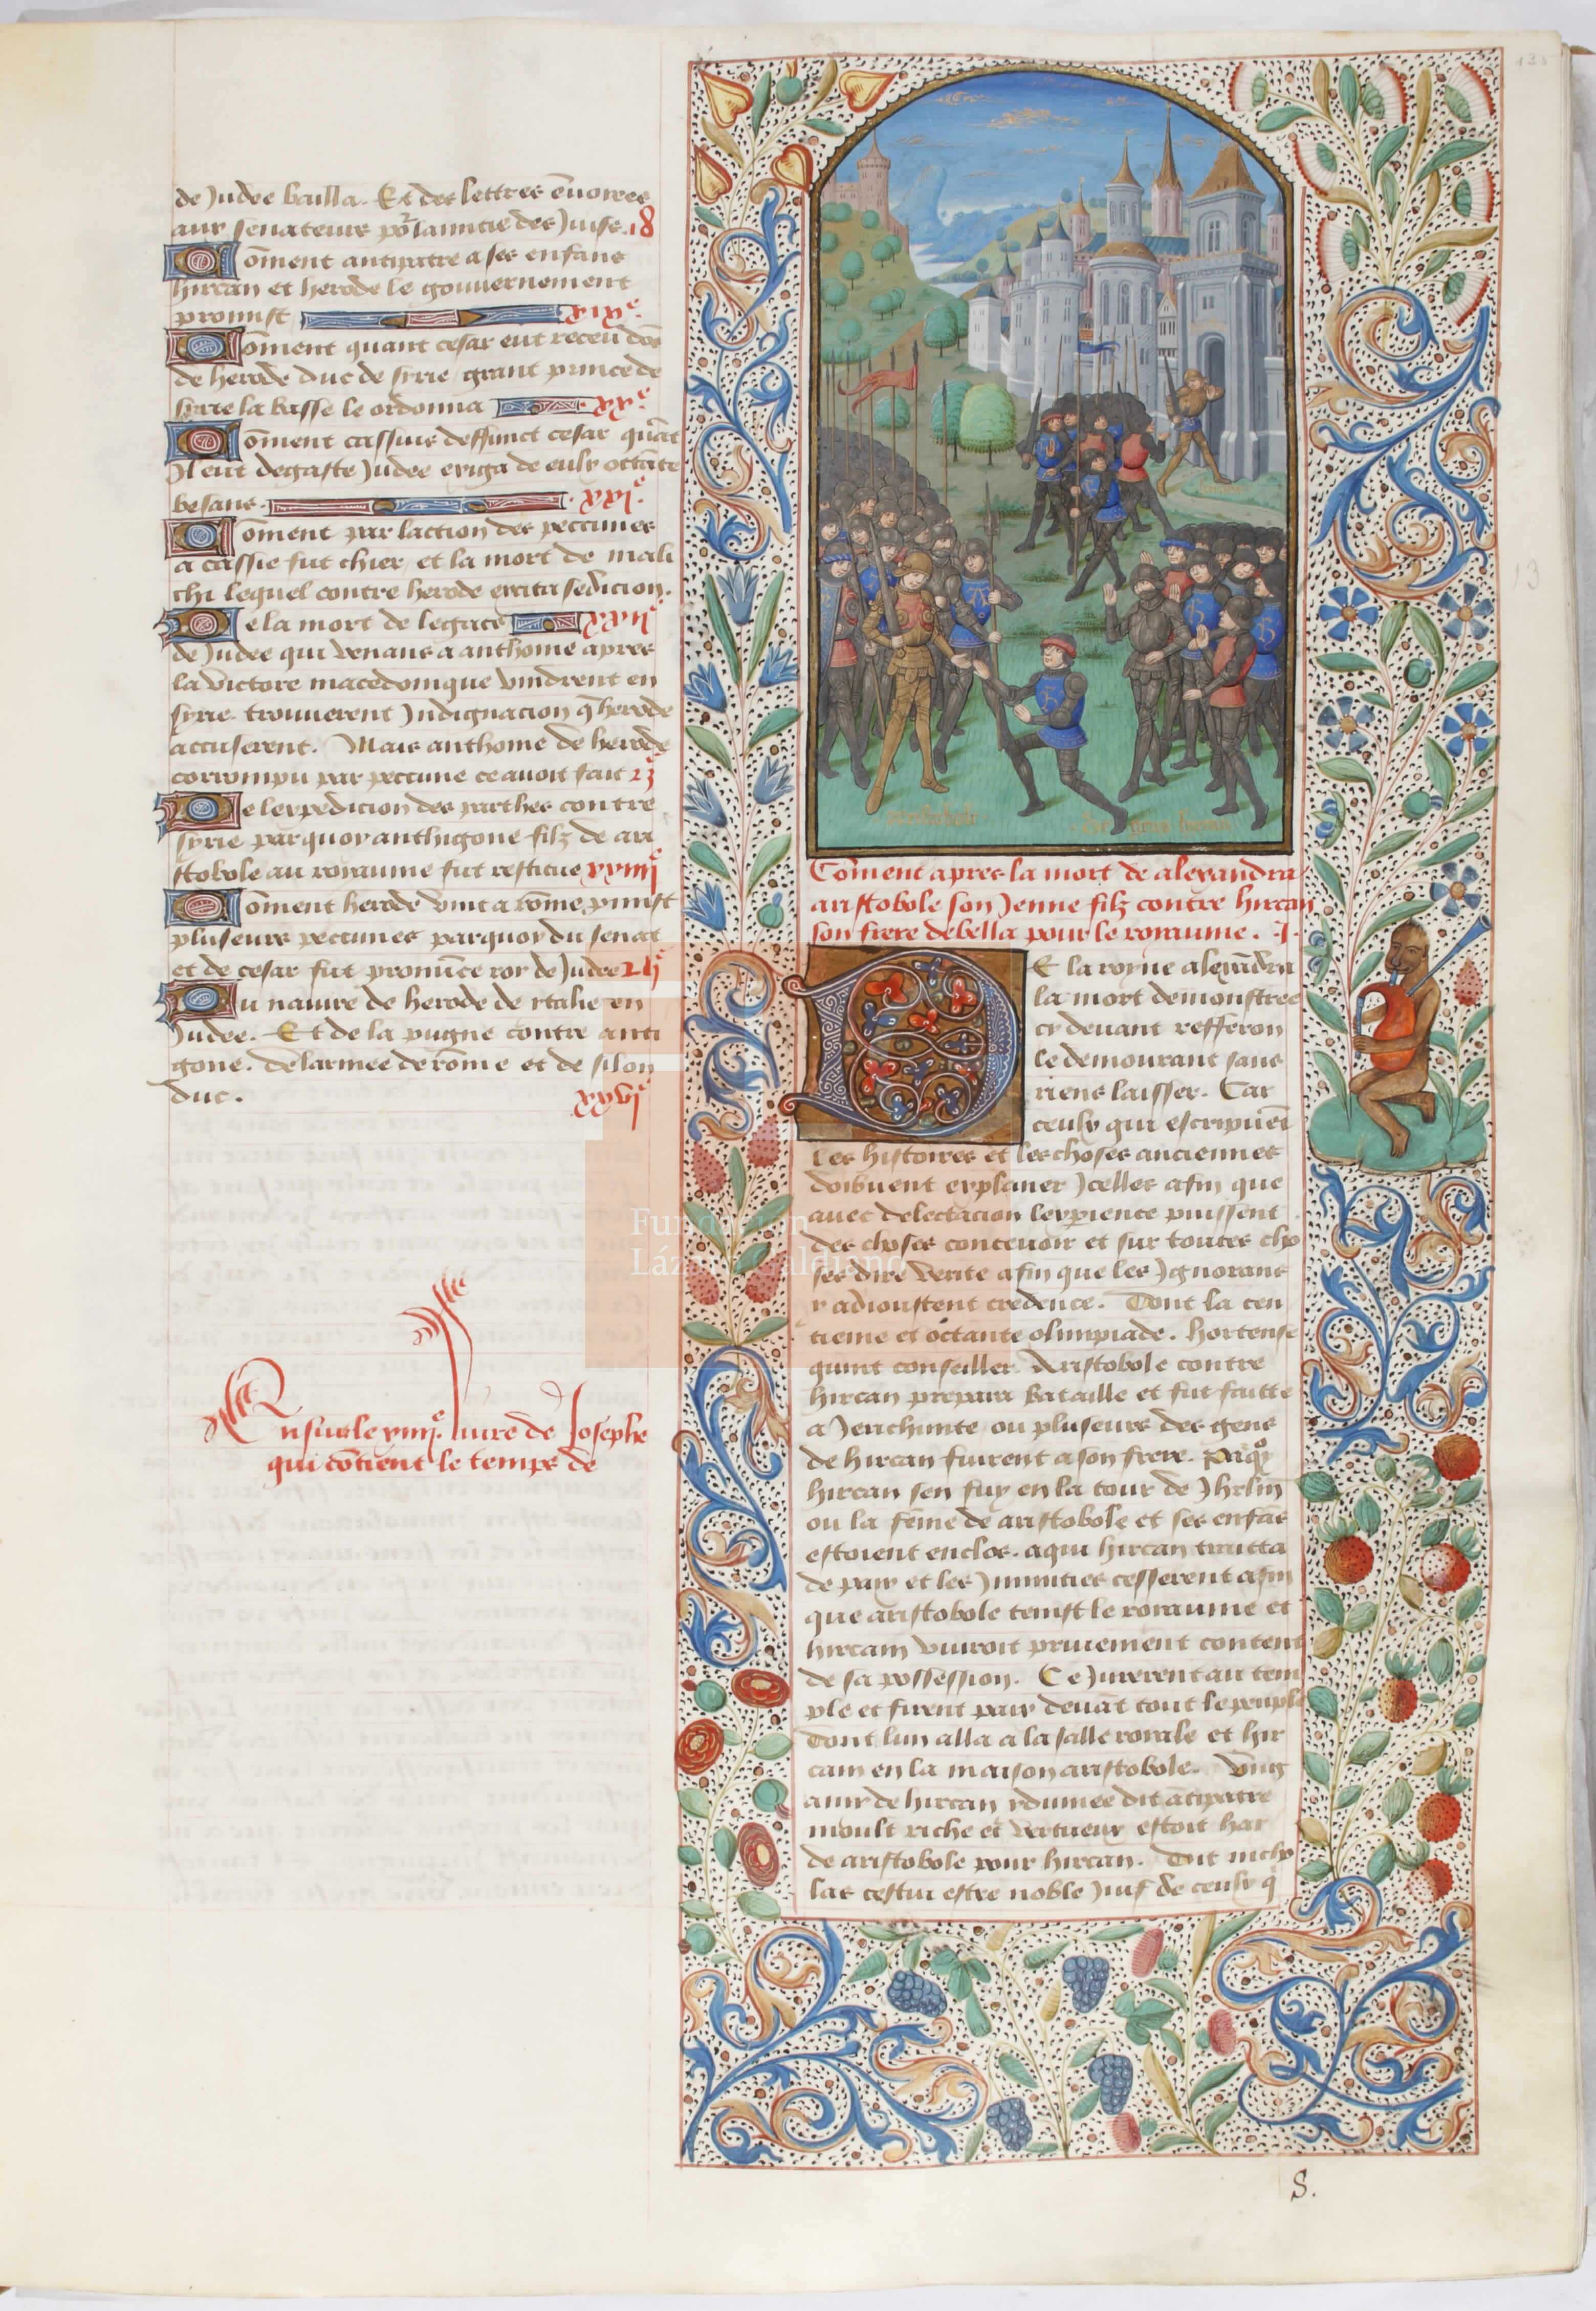 de Judee bailla. Et des lettres ẽuoiees
aux senateurs põ lamictie des Juifs. 18
Cõment antipatre a ses enfans
hircan et herode le gouuernement
promist xixᵉ.
Cõment quant cesar eut receu dõs
de herode duc de syrie grant prince de
sirie la basse le ordonna xxᵉ.
Cõment cassius deffunct cesar quãt
Il eut degaste Judee exiga de eulx octãte
besans. xxiᵉ.
Coment par laction des peccunes
a cassie fut chier, et la mort de mali
chi lequel contre herode excita sedicion.
De la mort de legacs xxiiᵉ
de Judee qui venans a anthoine apres
la victore macedonique vindrent en
syrie. trouuerent Indignacion q̃ herode
accuserent. Mais anthoine de herode
corrompu par peccune ce auoit fait 23ᵉ
De lexpedicion des parthes contre
syrie parquoy anthigone filz de ari
stobole au royaume fut restitue xxiiiiᵉ
Coment herode vint a rõme, pmist
pluseurs peccunes parquoy du senat
et de cesar fut pronũce roy de Judee 25ᵉ
Du nauire de herode de ytalie en
Judee. Et de la pugne contre anti
gone. de larmee de rõme et de silon
duc. xxviᵉ
Ensuit le xiiiiᵉ. liure de Josephe
qui cõtient le temps de
aristobole
Les gens hircan
Cõment apres la mort de alexandra
aristobole son Jenne filz contre hircan
son frere debella pour le royaume. .I.
DE la royne alexãdra
la mort demonstree
cy deuant refferon
le demourant sans
riens laisser. Car
ceulx qui escripuẽt
les histoires et les choses anciennes
doibuent explaner Icelles afin que
auec delectacion lexpience puissent
des choses conceuoir et sur toutes cho
ses dire verite afin que les Ignorans
y adioustent credence. Dont la cen
tieme et octante olimpiade. hortense
quint conseiller Aristobole contre
hircan prepara bataille et fut faitte
a Jerichunte ou pluseurs des gens
de hircan fuirent a son frere. Pquoy
hircan sen fuy en la tour de Jhrlm
ou la fẽme de aristobole et ses enfãs
estoient enclos. a qui hircan traitta
de paix et les Inimities cesserent afin
que aristobole tenist le royaume et
hircam viuroit priuement content
de sa possession. Ce Jurerent au tem
ple et firent paix deuãt tout le peuple
Dont lun alla a la salle royale et hir
cam en la maison aristobole. Vng
amy de hircan ydumee dit ãtipatre
moult riche et vertueux estoit har
de aristobole pour hircan. Dit nicho
las cestui estre noble Juif de ceulx q̃
S.
Fundación
Lázaro Galdiano